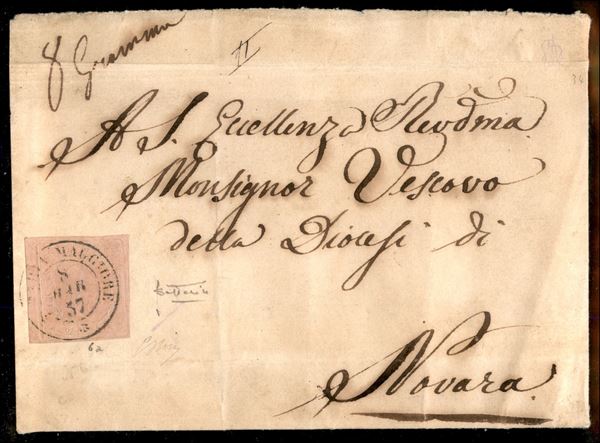 8 Gramma
II
A S. Eccellenza Revdma
Monsignor Vescovo
della Diocesi di
Novara
MAGGIORE
8
MAR
57
62